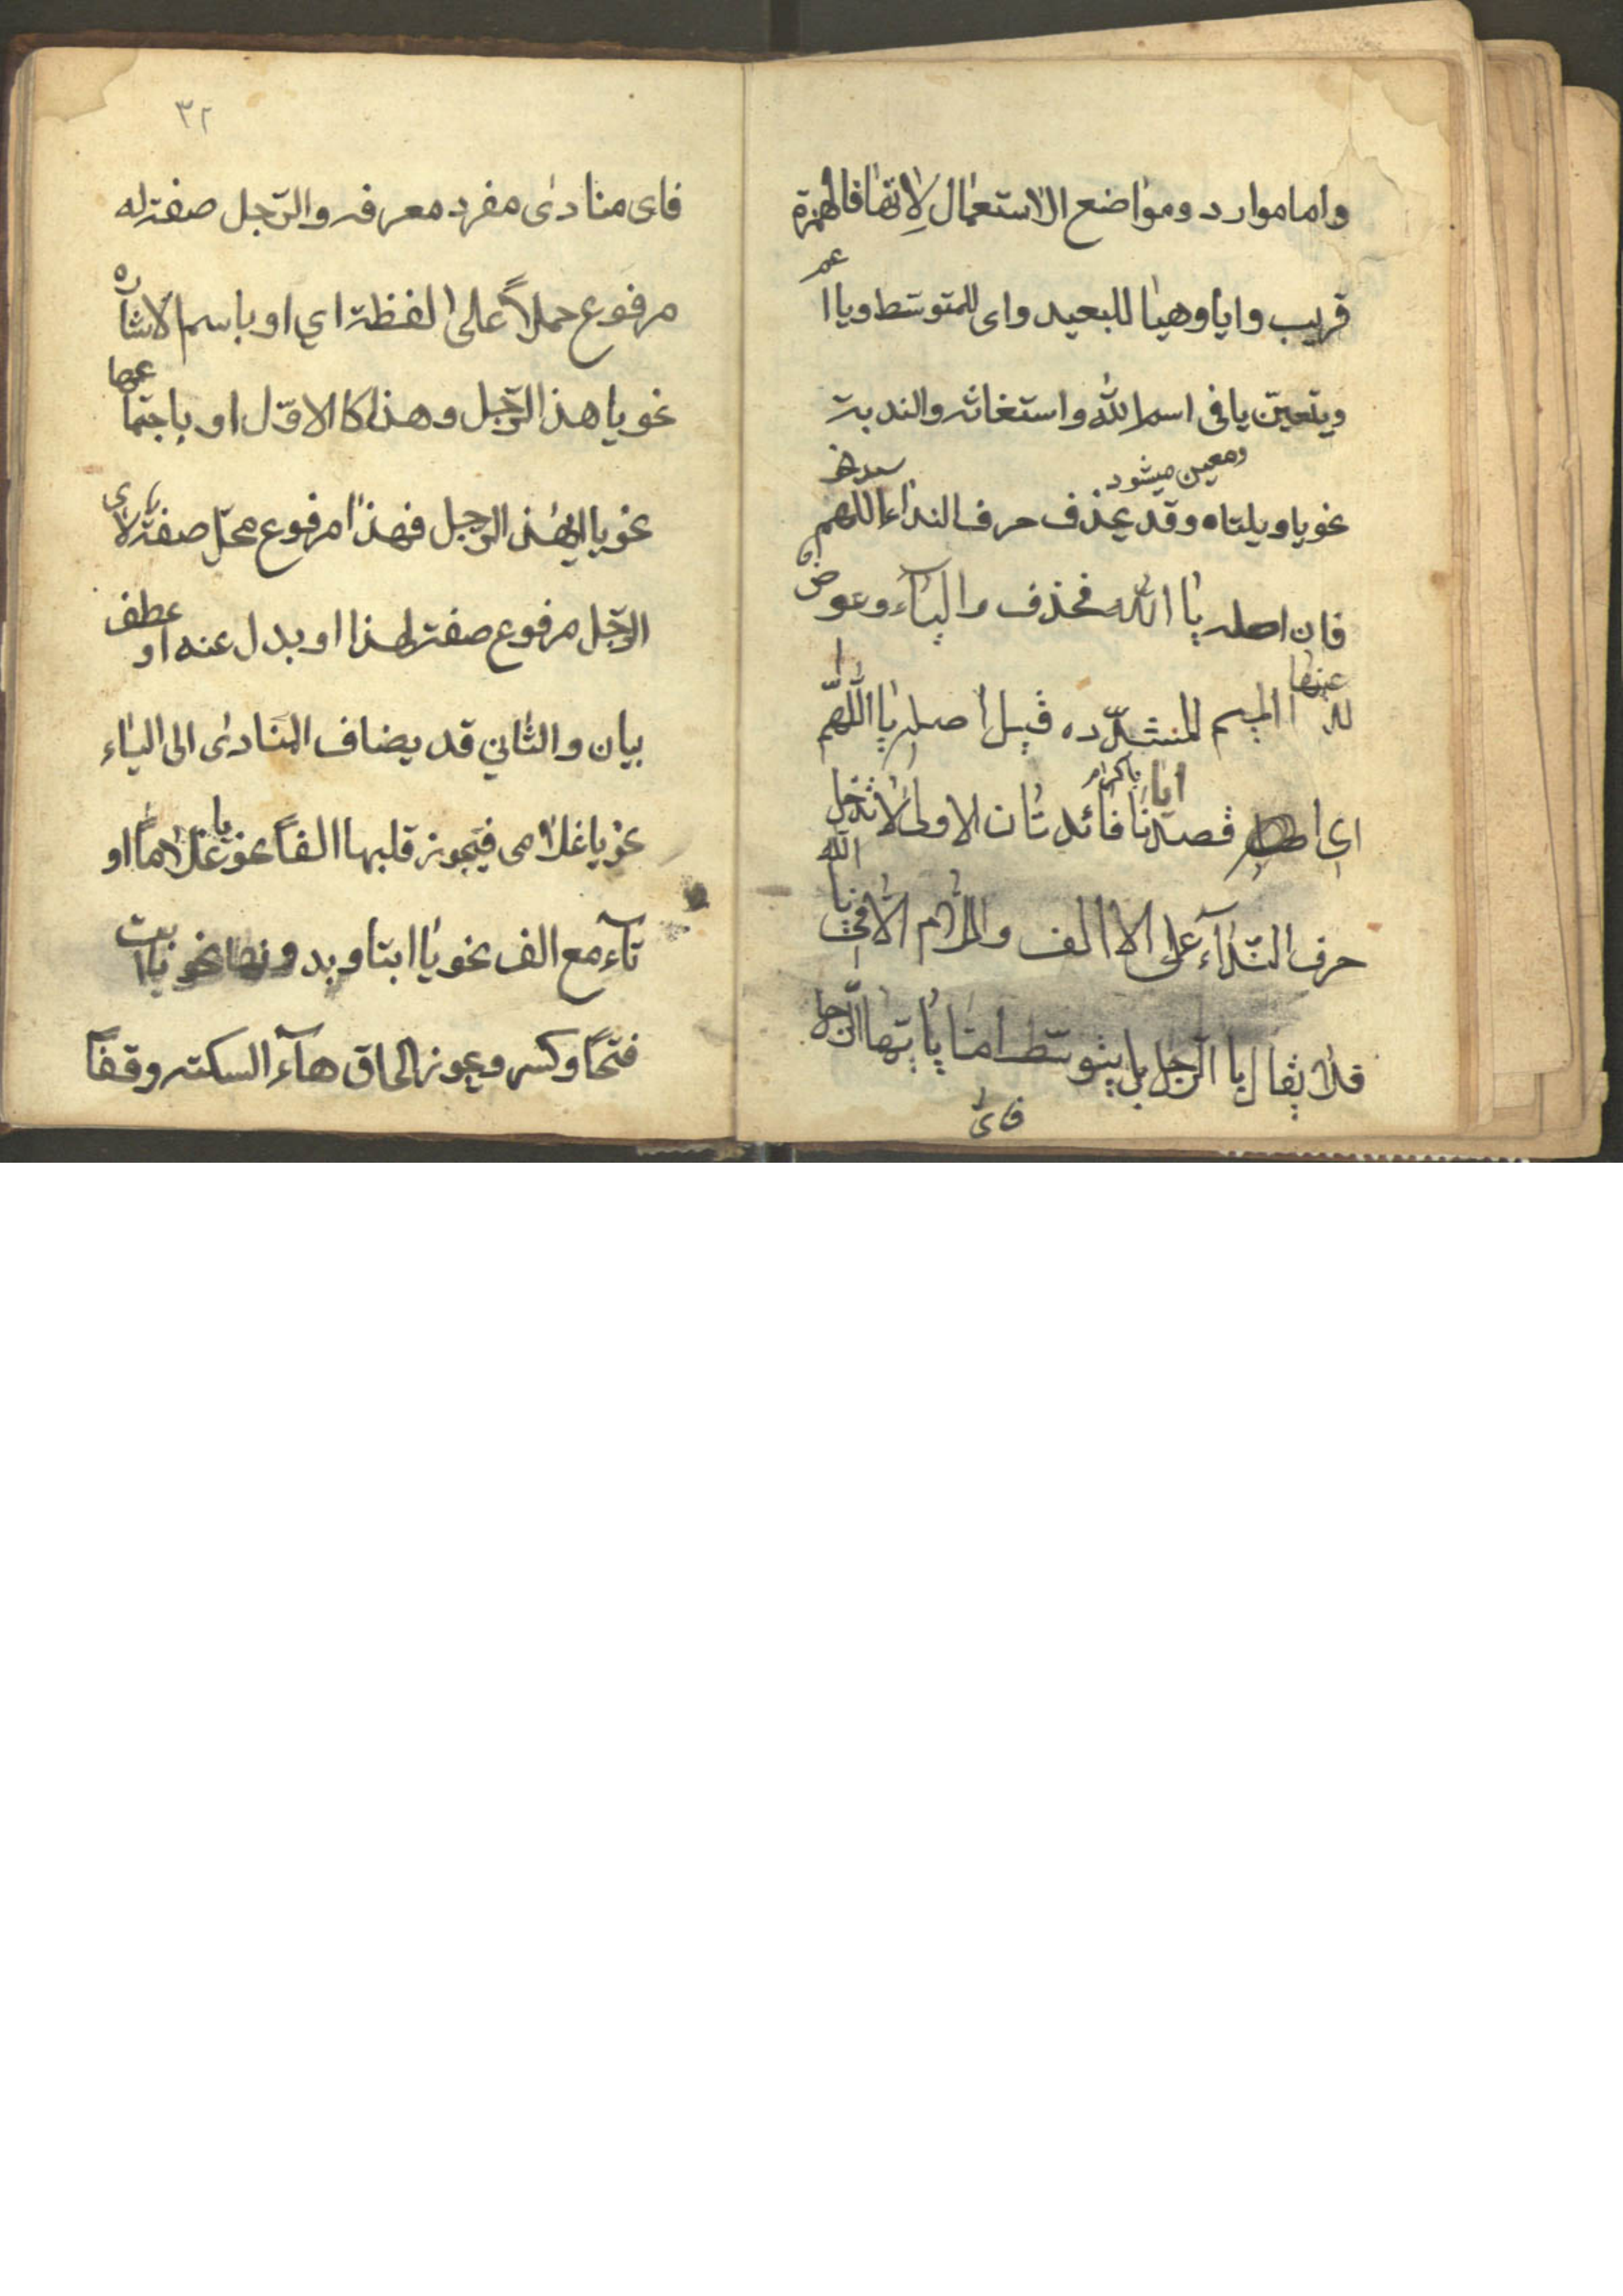 واما موارد ومواضع الاستعمال لاتها فالهمزة
قريب وايا وهيا للبعيد واى للمتوسط ويا اعم
ويتعين يا فى اسم الله واستغاثه والندبة
ومعين ميشود
نحو يا ويلتاه وقد يحذف حرف النداء اللهم
فان اصله يا الله فحذف والياء وعوض
عنها الميم المشدده قيل اصله يا اللهم
اى قصدنا فائدتان الاولى لاتدخل
حرف النداء على الا الف واللام الا فى يا الله
فلا يقال يا الرجل بل يتوسط امتا يا ايتها الرجل
فاى
٣٢
فاى منادى مفرد معرفه والرجل صفة له
مرفوع حملاً على لفظة اي او باسم الاشاره
نحو يا هذا الرجل وهذا كا الاول او باجتماعهما
نحو يا ايهذا الرجل فهذا مرفوع محل صفة لاى
الرجل مرفوع صفة لهذا او بدل عنه او عطف
بيان والثاني قد يضاف المنادى الى الياء
نحو يا غلامى فيجوز قلبها الفاً نحو يا غلاماً او
تآء مع الف نحو يا ابتا وبدونها نحو يا ابت
فتحاً وكسر ويجوز الحاق هآء السكته وقفاً